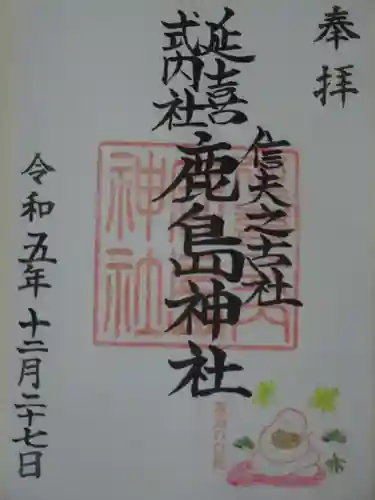 奉拝
延喜
式内社
信夫之古社
鹿島神社
令和五年十二月二十七日